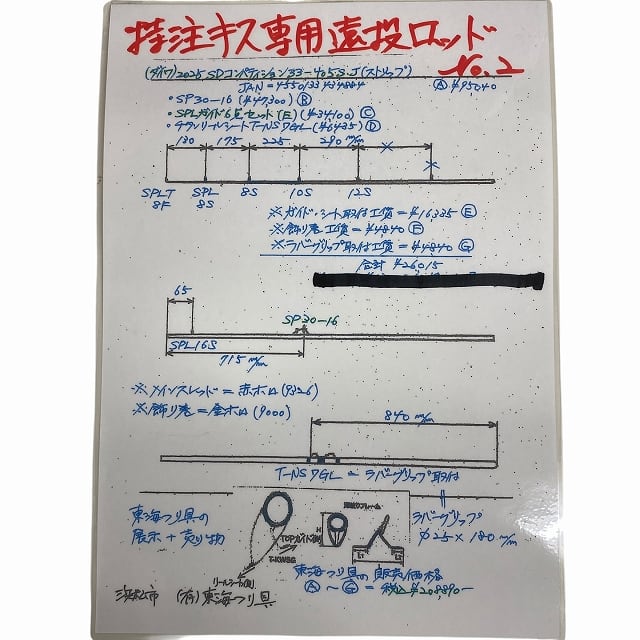 特注キス専用遠投ロッド
No.2
(ダイワ) 2025 SDコンペティション33-405S.J(ストリップ)
JAN=4550133434884
Ⓐ ¥95040
・SP30-16(¥47,300) Ⓑ
・SPLガイド6点セット(E)(¥34100) Ⓒ
・チタンリールシートT-NS7GL(¥6435) Ⓓ
130 175 225 290 m/m
SPLT 8F SPL 8S 8S 10S 12S
※ガイド・シート取付工賃=¥16,335 Ⓔ
※飾り巻工賃=¥4,840 Ⓕ
※ラバーグリップ取付工賃=¥4840 Ⓖ
合計 ¥26,015
65
SP30-16
SPL16S
715 m/m
※メインスレッド=赤ホロ(9326)
※飾り巻=金ホロ(9000)
840 m/m
T-NS7GL ラバーグリップ取付
東海つり具の
展示+売り物
TOPガイド(側)
T-KWSG
リールシート(側)
H
LT
ラバーグリップ
Φ25×180 m/m
東海つり具の販売価格
Ⓐ~Ⓖ=税込¥208,890-
浜松市 (有)東海つり具